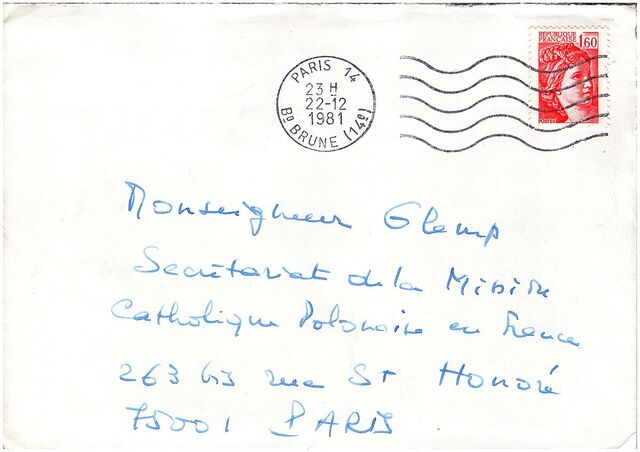 REPUBLIQUE
FRANÇAISE 1,60
PARIS 14
23 H
22-12
1981
BD BRUNE (14e)
Monseigneur Glemp
Secrétariat de la Mission
Catholique Polonaise en France
263 bis rue St Honoré
75001 PARIS